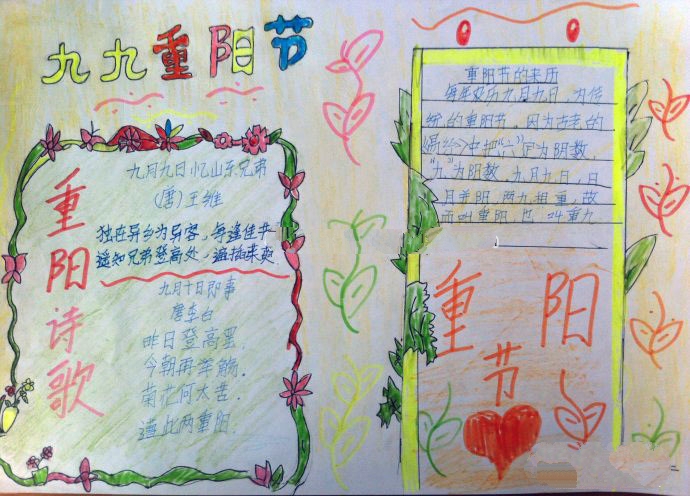 九九重阳节
重阳诗歌
九月九日忆山东兄弟
(唐)王维
独在异乡为异客，每逢佳节
遥知兄弟登高处，遍插茱萸
九月十日即事
唐李白
昨日登高罢.
今朝再举觞.
菊花何太苦.
遭此两重阳.
重阳节的来历
每年农历九月九日，为传
统的重阳节，因为古老的
中把“六”定为阴数，
“九”为阳数，九月九日，日
月并阳，两九相重，故
而叫重阳，也叫重九
重阳
节